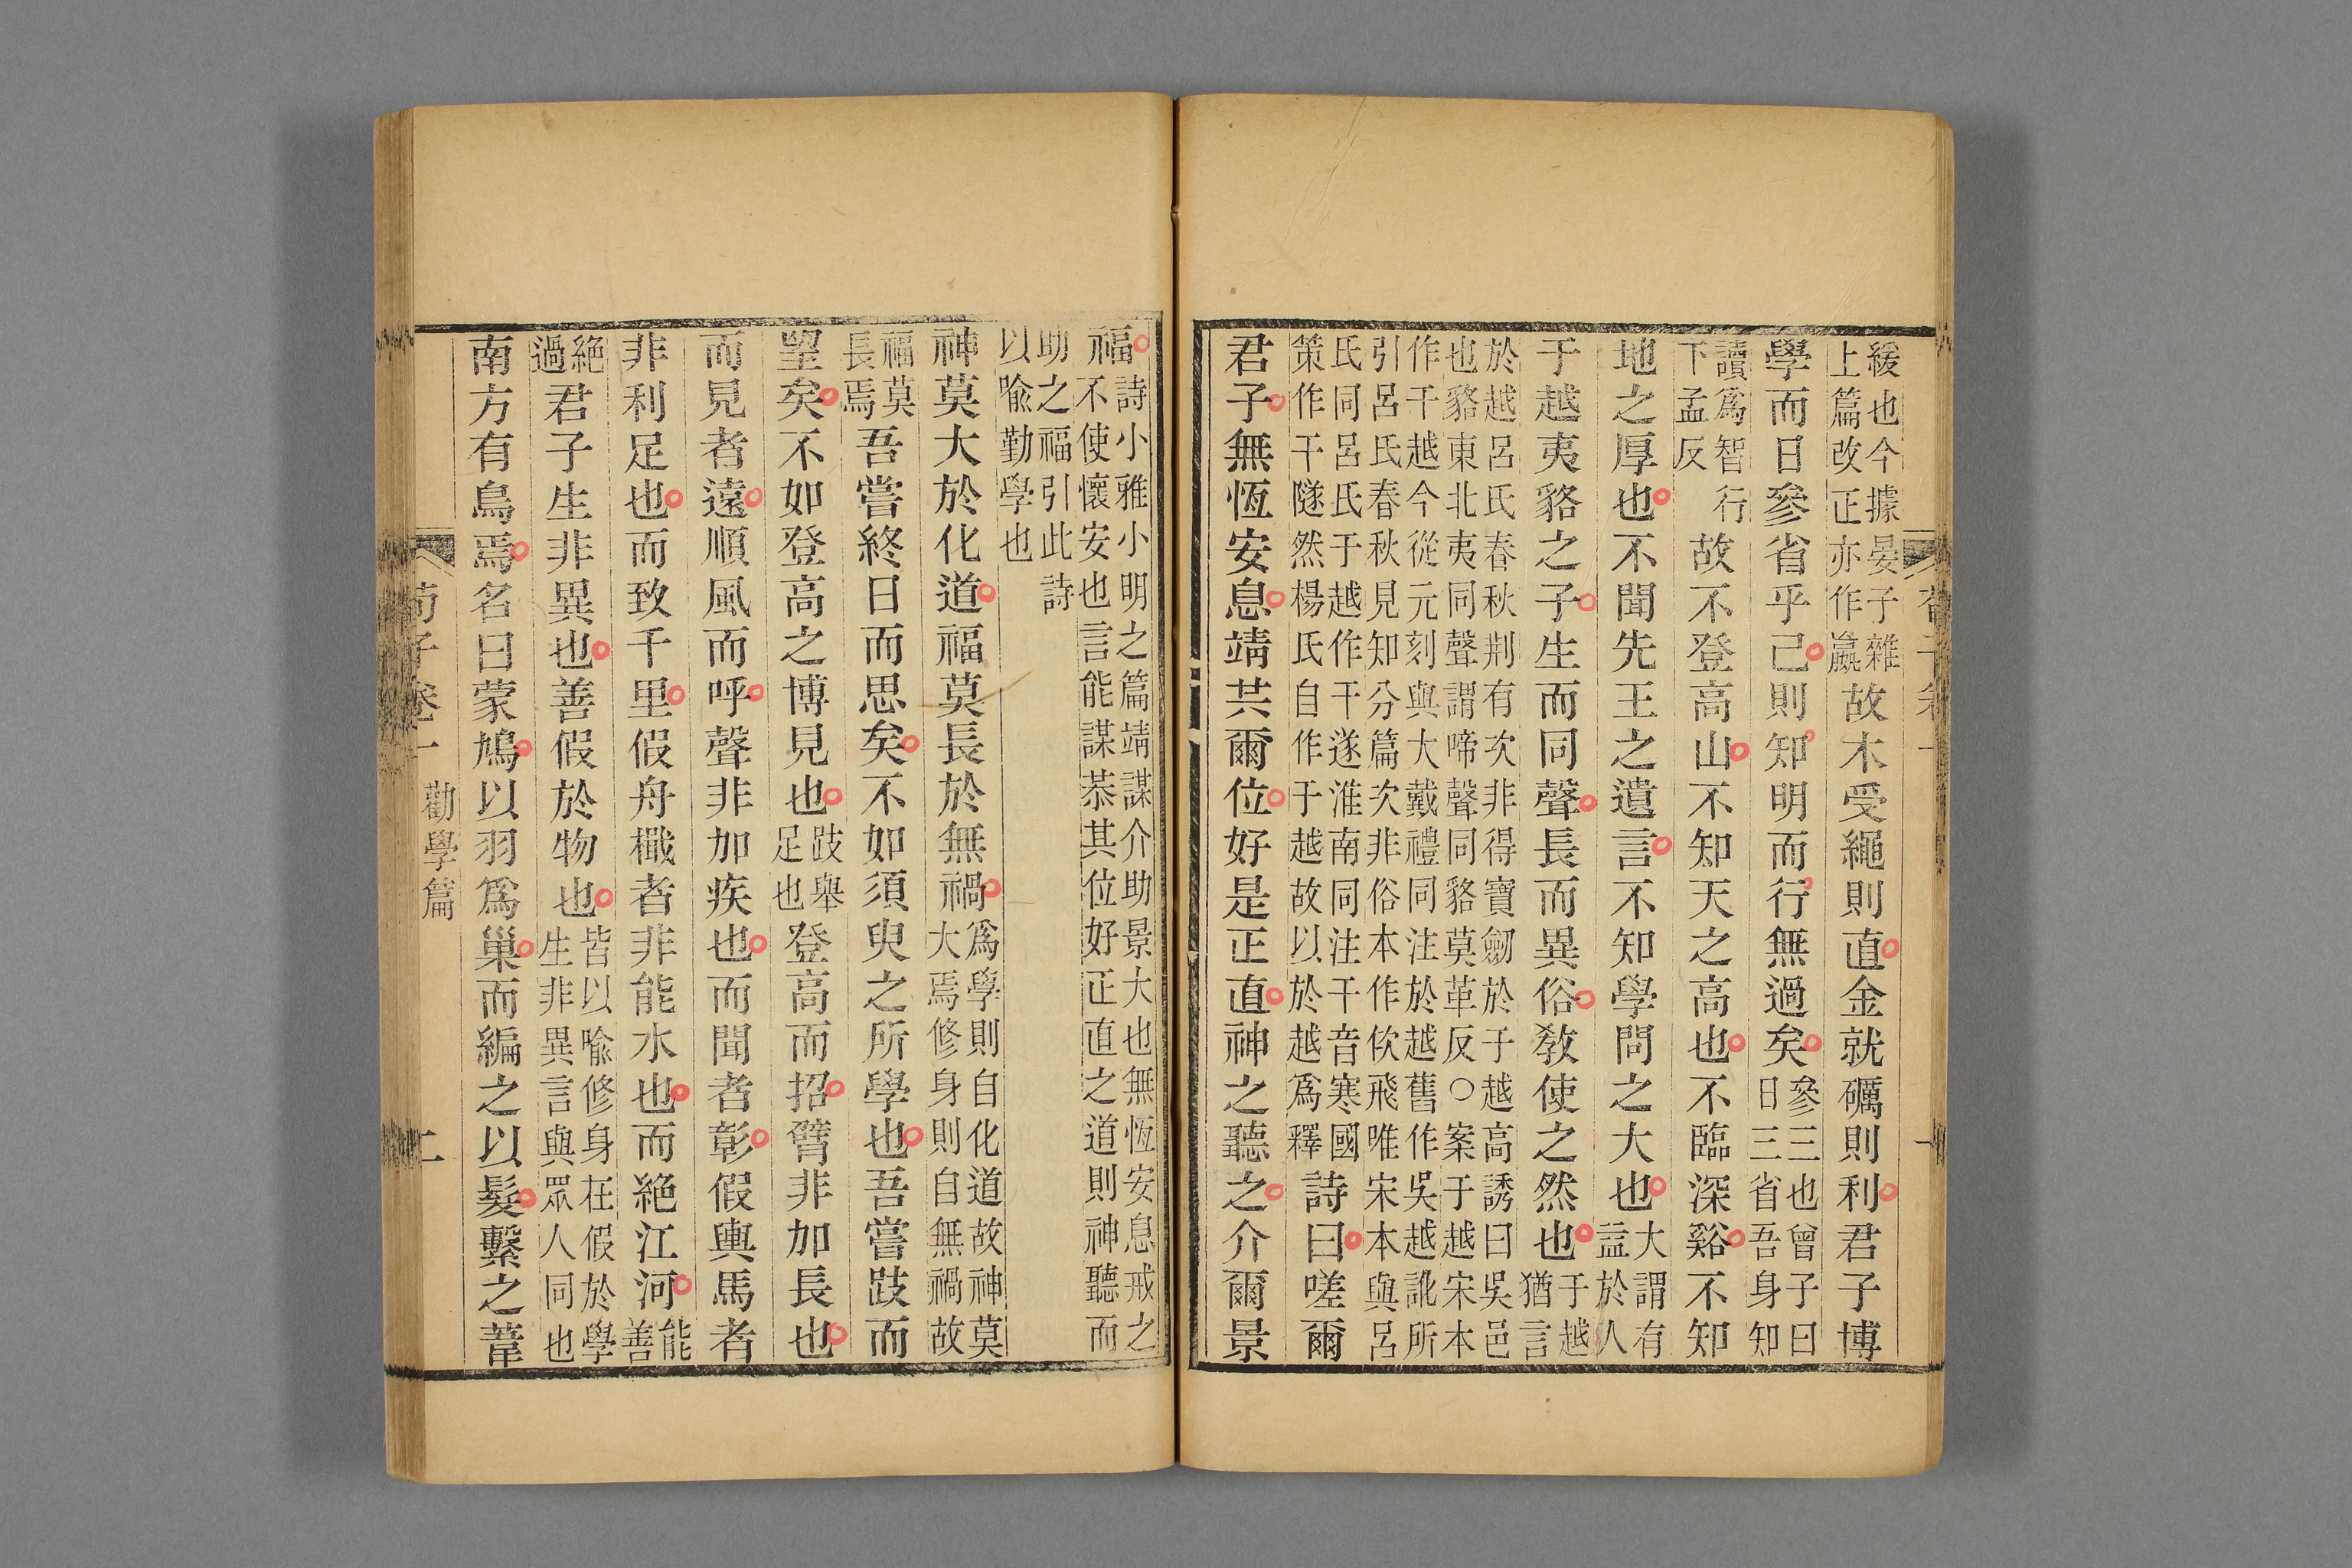 緩也今據晏子雜上篇改正亦作贏故木受繩則直金就礪則利君子博
學而日參省乎己則知明而行無過矣參三也曾子曰日三省吾身知
讀爲智行下孟反故不登高山不知天之高也不臨深谿不知
地之厚也不聞先王之遺言不知學問之大也大謂有益於人
于越夷貉之子生而同聲長而異俗敎使之然也于越猶言
於越呂氏春秋荆有次非得寶劒於于越高誘曰吳邑
也貉東北夷同聲謂啼聲同貉莫革反○案于越宋本
作干越今從元刻與大戴禮同注於越舊作吳越訛所
引呂氏春秋見知分篇次非俗本作佽飛唯宋本與呂
氏同呂氏于越作干遂淮南同注干音寒國
策作干隧然楊氏自作于越故以於越爲釋詩曰嗟爾
君子無恆安息靖共爾位好是正直神之聽之介爾景
福詩小雅小明之篇靖謀介助景大也無恆安息戒之
不使懷安也言能謀恭其位好正直之道則神聽而
助之福引此詩
以喩勤學也
神莫大於化道福莫長於無禍爲學則自化道故神莫大焉修身則自無禍故
福莫長焉吾嘗終日而思矣不如須臾之所學也吾嘗跂而
望矣不如登高之博見也跂舉足也登高而招臂非加長也
而見者遠順風而呼聲非加疾也而聞者彰假輿馬者
非利足也而致千里假舟檝者非能水也而絕江河能善
絕過君子生非異也善假於物也皆以喩修身在假於學生非異言與眾人同也
南方有鳥焉名曰蒙鳩以羽爲巢而編之以髮繫之葦
荀子卷一 勸學篇 二